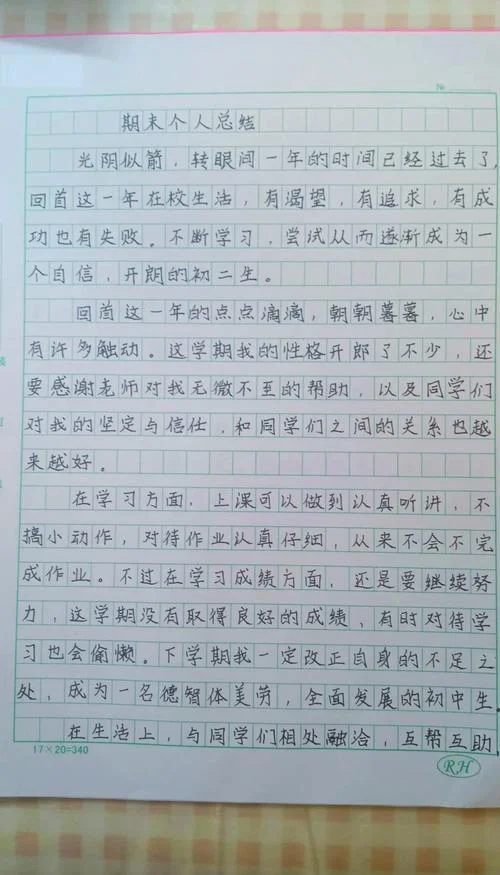 №
期末个人总结
光阴似箭，转眼间一年的时间已经过去了，
回首这一年在校生活，有渴望，有追求，有成
功也有失败。不断学习，尝试从而逐渐成为一
个自信，开朗的初二生。
回首这一年的点点滴滴，朝朝暮暮，心中
有许多触动。这学期我的性格开郎了不少，还
要感谢老师对我无微不至的帮助，以及同学们
对我的坚定与信任，和同学们之间的关系也越
来越好。
在学习方面，上课可以做到认真听讲，不
搞小动作，对待作业认真仔细，从来不会不完
成作业。不过在学习成绩方面，还是要继续努
力，这学期没有取得良好的成绩，有时对待学
习也会偷懒。下学期我一定改正自身的不足之
处，成为一名德智体美劳，全面发展的初中生。
在生活上，与同学们相处融洽，互帮互助
17×20=340
RH